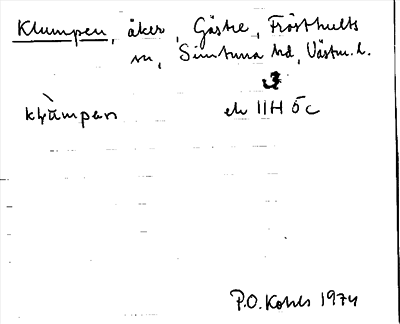 Klumpen, åker, Gästre, Frösthults
sn, Simtuna hd, Västm. l.
3
klùmpen ek 11H 5c
P.O. Kohls 1974